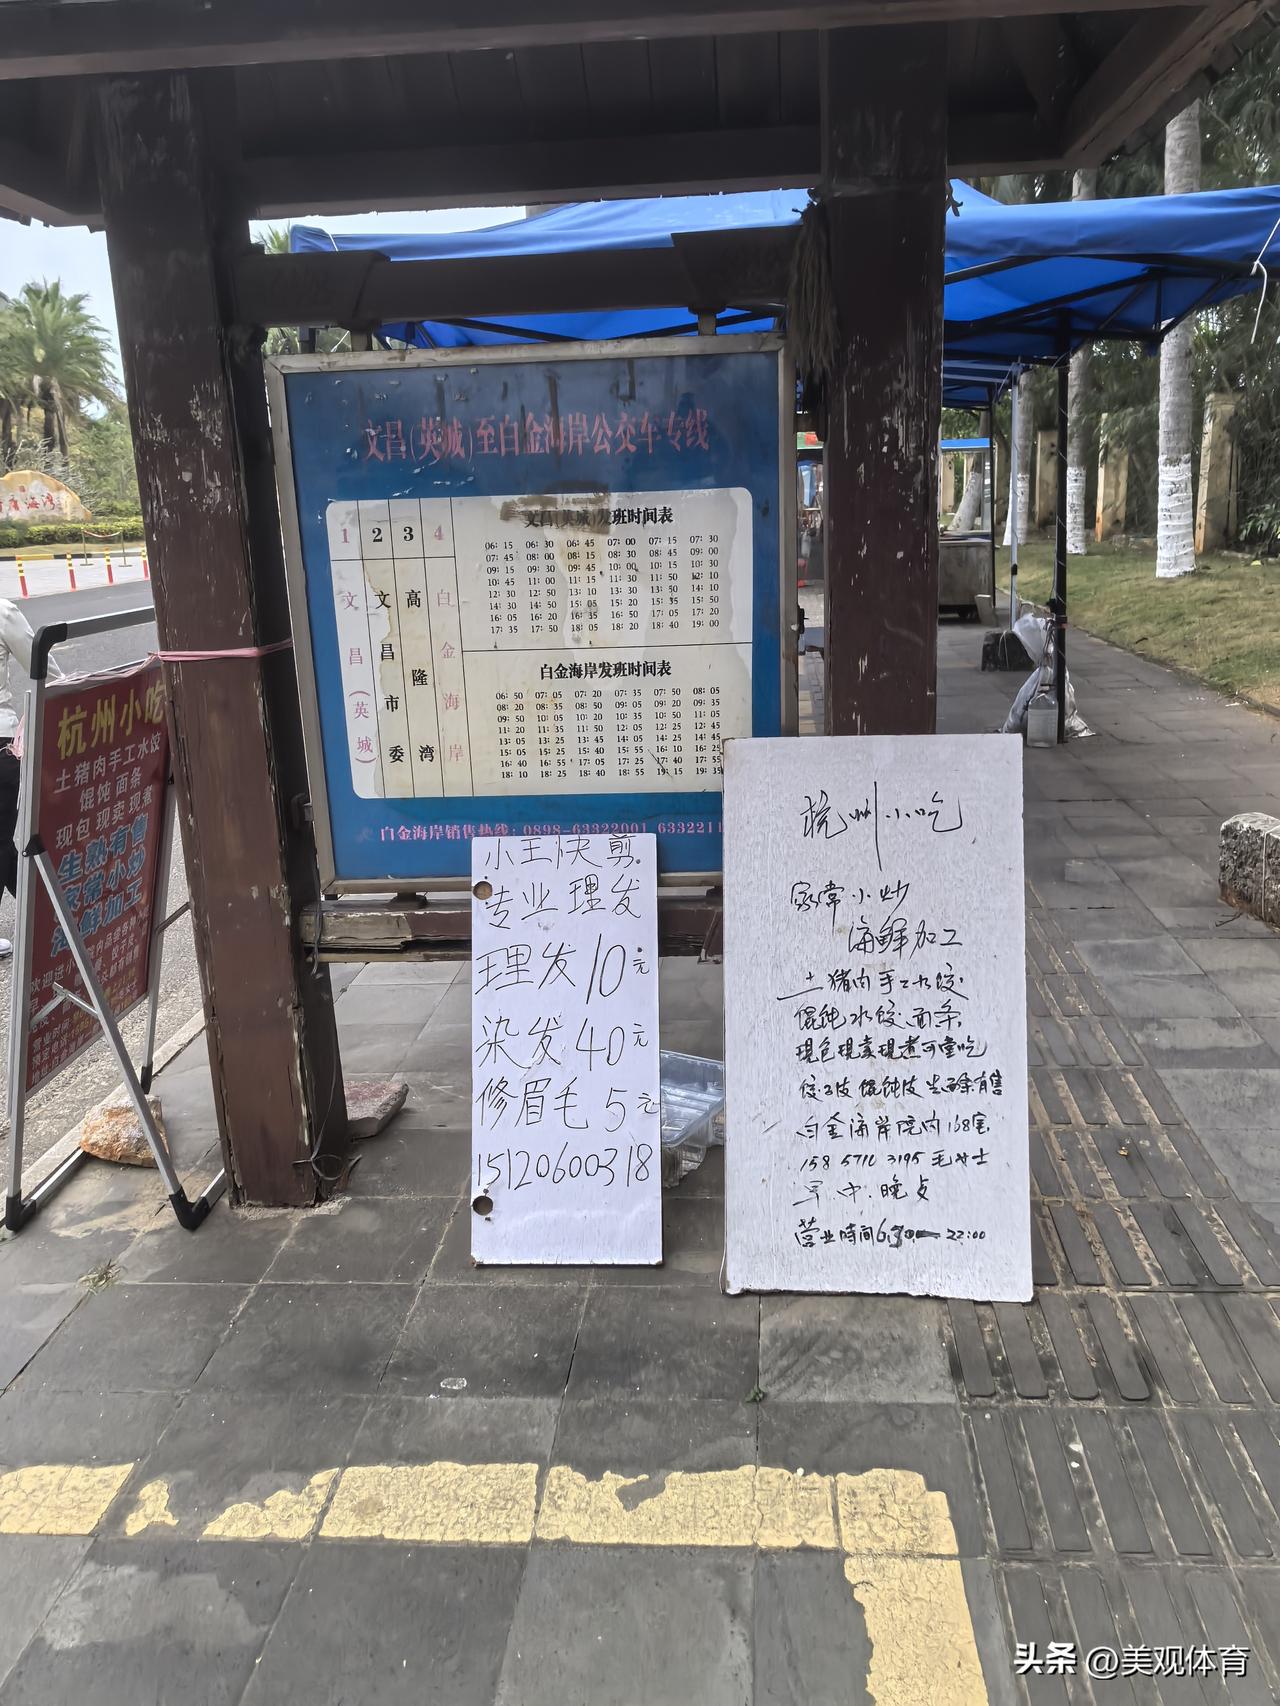 文昌(英城)至白金海岸公交车专线
1 2 3 4
文昌(英城)
文昌市委
高隆湾
白金海岸
文昌(英城)发班时间表
06:15 06:30 06:45 07:00 07:15 07:30
07:45 08:00 08:15 08:30 08:45 09:00
09:15 09:30 09:45 10:00 10:15 10:30
10:45 11:00 11:15 11:30 11:50 12:10
12:30 12:50 13:10 13:30 13:50 14:10
14:30 14:50 15:05 15:20 15:35 15:50
16:05 16:20 16:35 16:50 17:05 17:20
17:35 17:50 18:05 18:20 18:40 19:00
白金海岸发班时间表
06:50 07:05 07:20 07:35 07:50 08:05
08:20 08:35 08:50 09:05 09:20 09:35
09:50 10:05 10:20 10:35 10:50 11:05
11:20 11:35 11:50 12:05 12:25 12:45
13:05 13:25 13:45 14:05 14:25 14:45
15:05 15:25 15:40 15:55 16:10 16:25
16:40 16:55 17:10 17:25 17:40 17:55
18:10 18:25 18:40 18:55 19:15 19:35
白金海岸销售热线:0898-63322001 6332211
杭州小吃
土猪肉手工水饺
馄饨面条
现包现卖现煮
生熟有售
家常小炒
海鲜加工
小王快剪
专业理发
理发10元
染发40元
修眉毛5元
15120600318
杭州小吃
家常小炒
海鲜加工
土猪肉手工水饺
馄饨水饺面条
现包现卖现煮可堂吃
饺子皮馄饨皮生熟有售
白金海岸院内168室
158 5710 3195毛女士
早.中.晚.
营业時间6:30—22:00
头条 @美观体育